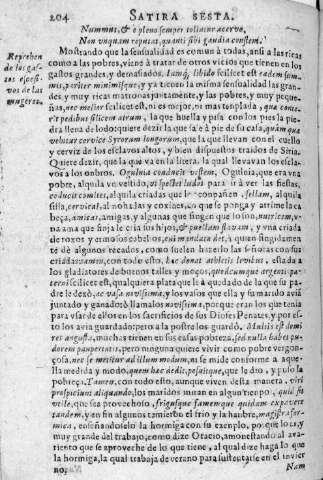 204. SATIRA SESTA.
Nummus, & e pleno semper tollatur acervo,
Non unquam reputas, quanti sibi gaudia constent.
Reprehen
de los gas
tos eçesi-
vos de las
mugeres.
Mostrando que la sensualidad es comun à todas, ansi a las ricas
como a las pobres, viene à tratar de otros vicios que tienen en los
gastos grandes, y demasiados. Iamq́; libido scilicet est eadem sum
mis, pariter minimisque, y ya tienen la misma sensualidad las gran-
des, y muy ricas matronas juntamente, y las pobres, y muy peque-
ñas, nec melior scilicet est, ni es mejor, ni mas templada, qua conte-
rit pedibus silicem atrum, la que huella y pisa con los pies la pie-
dra llena de lodo: quiere dezir la que sa è à pie de su casa, quàm quæ
vehitur cervice Syrorum longorum, que la que llevan con el cuello
y cerviz de los esclavos altos, y bien dispuestos traidos de Siria,
Quiere dezir, que la que va en la litera, la qual llevavan los escla-
vos a los onbros. Ogulnia conducit vestem, Ogulnia, que era vna
pobre, alquila vn vestido, ut spectet ludos para ir à ver las fiestas,
conducit comites, alquila criadas que la aconpañen, sellam, al quila
silla, cervical, almohadas y coxines,
beça, amicas, amigas, y algunas que fingen que lo son, nutricem, v-
na ama que finja le cria sus hijos, & puellam flavam, y vna criada
de roxos y ermosos cabellos, cui mandata det, à quien fingidamen
te dè algunos recados, como suelen hazerlo las
con todo esto, hæc donat athletis levibus, esta da a
los gladiatores de buenos talles y moços, quodcumque argenti pa-
terni scilicet est, qualquiera plata que le à quedado de la que su pa-
dre le dexò, ac vasa novissima, y los vasos que ella y su marido aviã
juntado y ganado: llamalos novissima, porque eran los que tenia
para vsar de ellos en los sacrificios de sus Dioses Penates, y por es-
to los avia guardado: pero a la postre los guardò. Multis est domi
res angusta, muchas tienen en sus casas pobreza, sed nulla habet pu-
dorem paupertatis, pero ninguna quiere vivir como pobre vergon-
çosa, nec se metitur ad illum modum, ni se mide conforme a aque-
lla medida y modo, quem hæc dedit, posuitque, que le dio, y puso la
pobreça. Tamen, con todo esto, aunque viven desta manera, viri
prospiciunt aliquando, los maridos miran en algun tienpo, quid sit
utile, que sea provechoso, frigusque famemque quidam expavere
tandem, y en fin algunos temieron el frio y la hanbre, magistra for-
mica, enseñandoselo la hormiga con su exemplo, porque los
muy grande del trabajo, como dize Oracio, amonestando al ava-
riento que se aproveche de lo que tiene, al qual dize haga lo que
la hormiga, la qual trabaja de verano para sustentarse en el invier
no, Nam